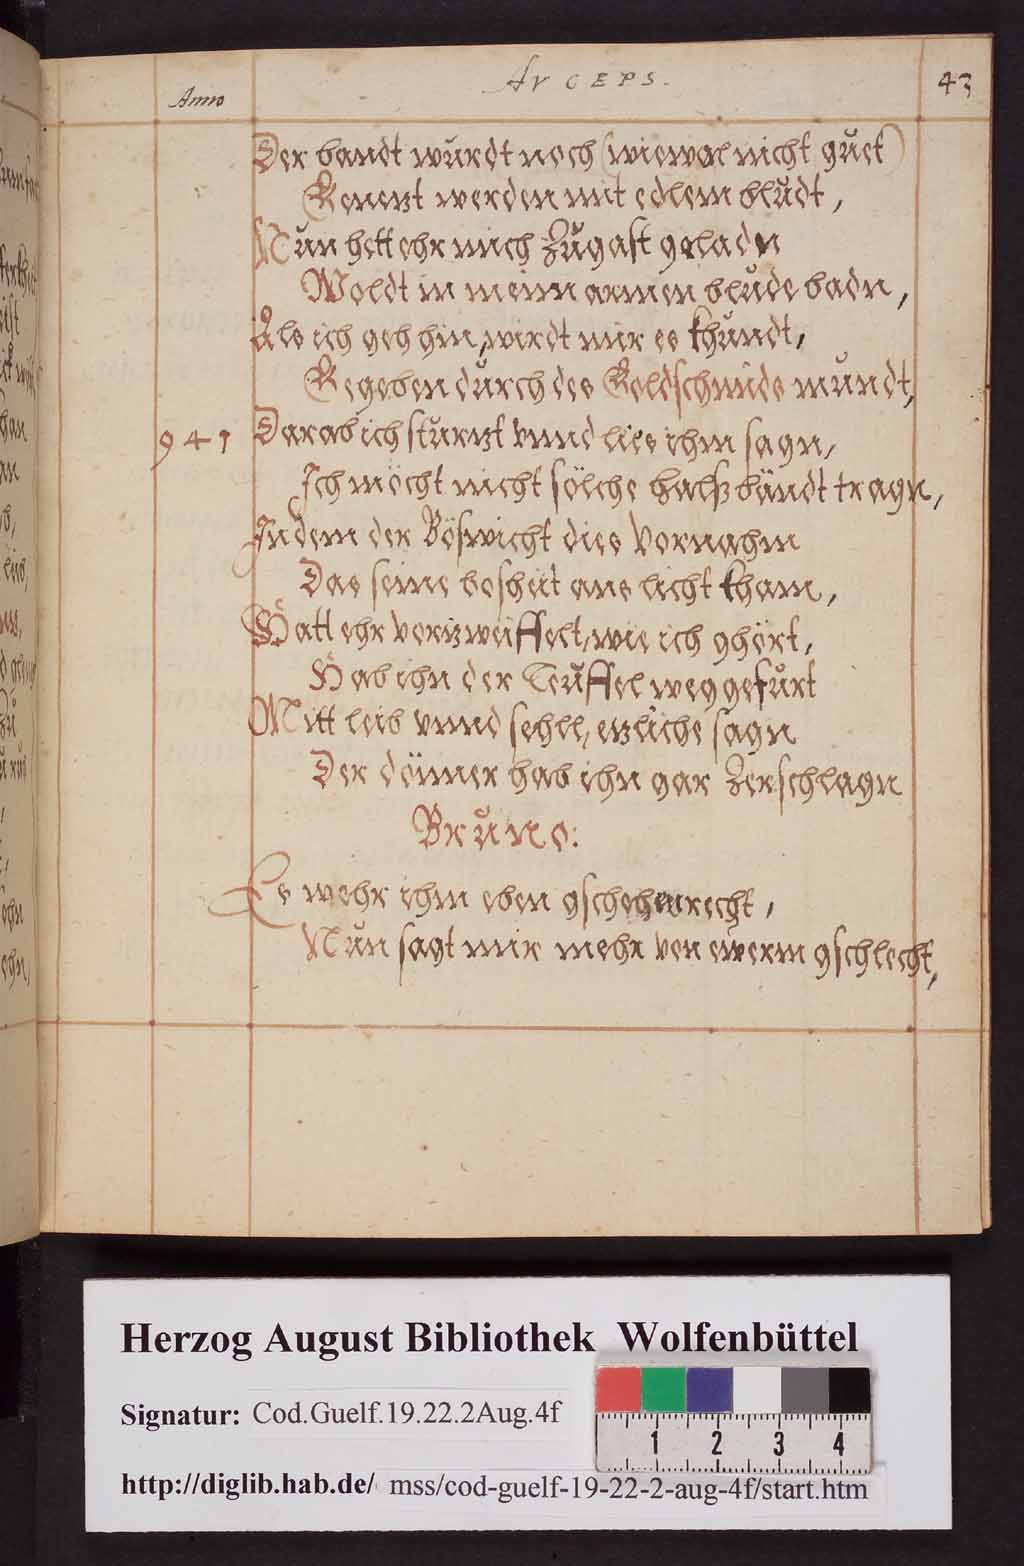 Anno
AVCEPS.
43
Der bandt wurdt noch (wiewol nicht guet)
Genetzt werden mit edlem bludt,
Nun hett ehr mich zugast geladn
Woldt in meim armen blude badn,
Als ich geh hin, wirdt mir es khundt,
Gegeben durch des Goldschmids mundt,
941
Darab ich sturtzt vnnd lies ihm sagn,
Ich möcht nicht sölche halßbändt tragn,
Indem der Böswicht dies vornahm
Das seine bosheit ans licht kham,
Hatt ehr vertzweiffelt, wie ich ghört,
Hab ihn der Teuffel weggefurt
Mitt leib vnnd sehll, etzliche sagn
Der dönner hab ihn gar zerschlagn
Bruno:
Es wehr ihm eben gschehen recht,
Nun sagt mir mehr von ewerm gschlecht,
Herzog August Bibliothek Wolfenbüttel
Signatur: Cod.Guelf.19.22.2Aug.4f
1 2 3 4
http://diglib.hab.de/ mss/cod-guelf-19-22-2-aug-4f/start.htm